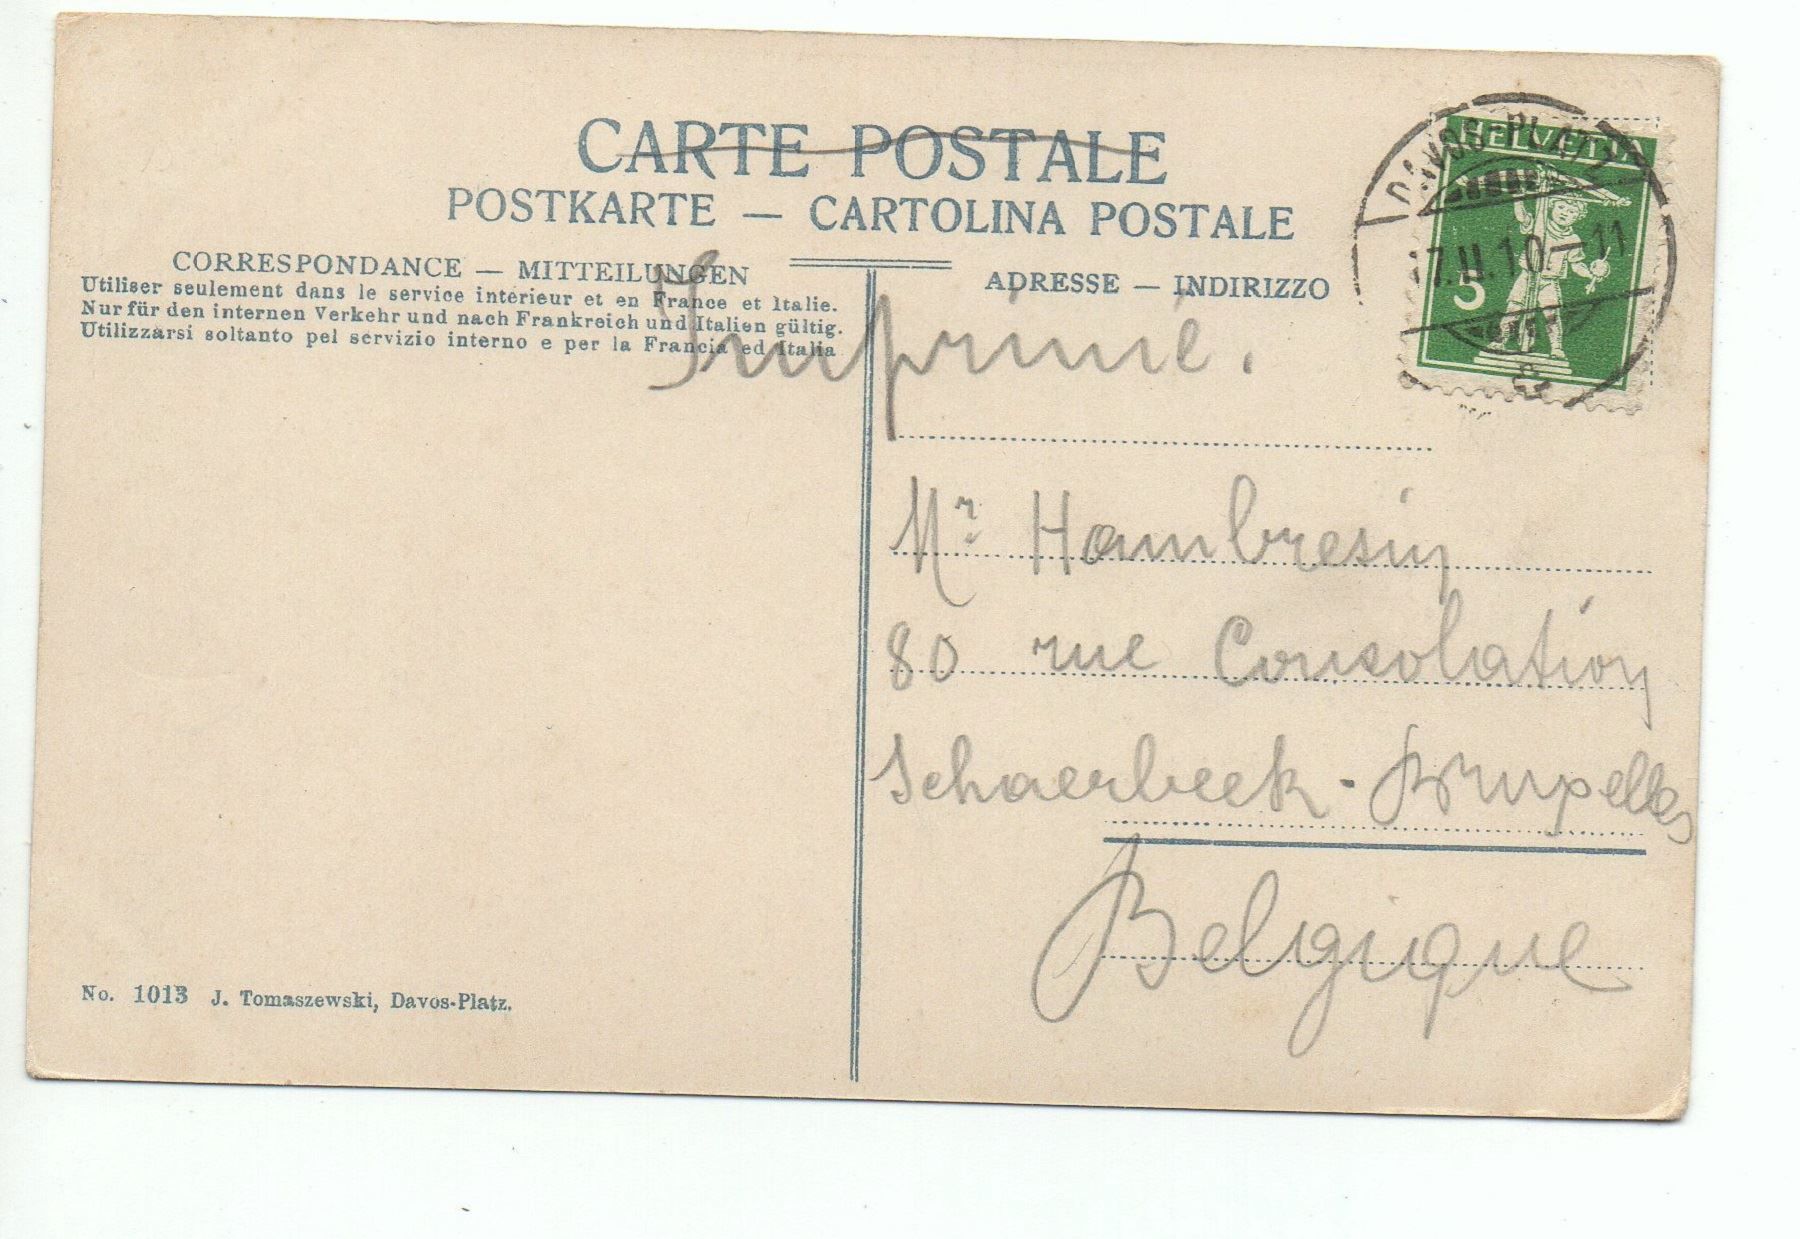 CARTE POSTALE
POSTKARTE — CARTOLINA POSTALE
CORRESPONDANCE — MITTEILUNGEN
Utiliser seulement dans le service intérieur et en France et Italie.
Nur für den internen Verkehr und nach Frankreich und Italien gültig.
Utilizzarsi soltanto pel servizio interno e per la Francia ed Italia
ADRESSE — INDIRIZZO
HELVETIA
5
DAVOS-PLATZ
7.II.10–11
Imprimé.
Mr Hambresin
80 rue Consolation
Schaerbeek - Bruxelles
Belgique
No. 1013 J. Tomaszewski, Davos-Platz.